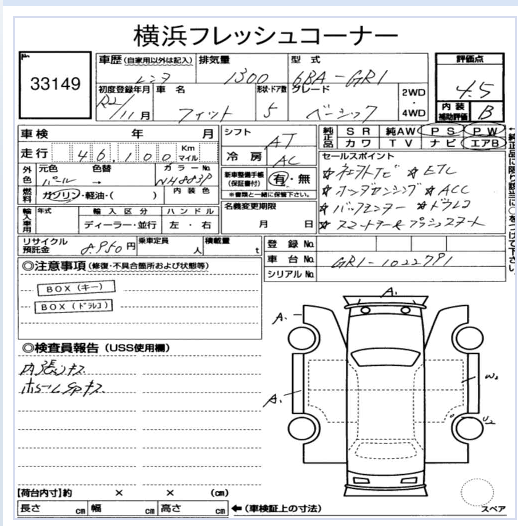 横浜フレッシュコーナー
No.
33149
車歴(自家用以外は記入) 排気量 型式
レンタ 1300 6BA-GR1
初度登録年月 車名 形状・ドア数 グレード 2WD
R2/11月 フィット 5 ベーシック 4WD
評価点
4.5
内装補助評価 B
車検 年 月
走行 46,100 Km マイル
外色 元色 色替 カラーNo.
パール → NH883P
燃料 ガソリン・軽油・( ) 内装色
輸入車用 年式 輸入区分 ハンドル
ディーラー・並行 左・右
リサイクル預託金 8960円 乗車定員 人 積載量 t
シフト AT
冷房 AC
新車整備手帳(保証書付) 有・無
名義変更期限
月 日
純正品 SR 純AW PS PW
カワ TV ナビ エアB
セールスポイント
☆ ETC
☆ホンダセンシング ☆ACC
☆ドラレコ
☆スマートキー&プッシュスタート
登録No.
車台No. GR1-1022791
シリアルNo.
←純正品に限り該当に○をつけて下さい。
◎注意事項(修復・不具合箇所および状態等)
BOX(キー)
BOX(ドラレコ)
◎検査員報告(USS使用欄)
内張キズ
ホイールCapキズ
A₁
A₁
A₁
W₂
U₂
スペア
【荷台内寸】約 × × (cm)
長さ cm 幅 cm 高さ cm ←(車検証上の寸法)